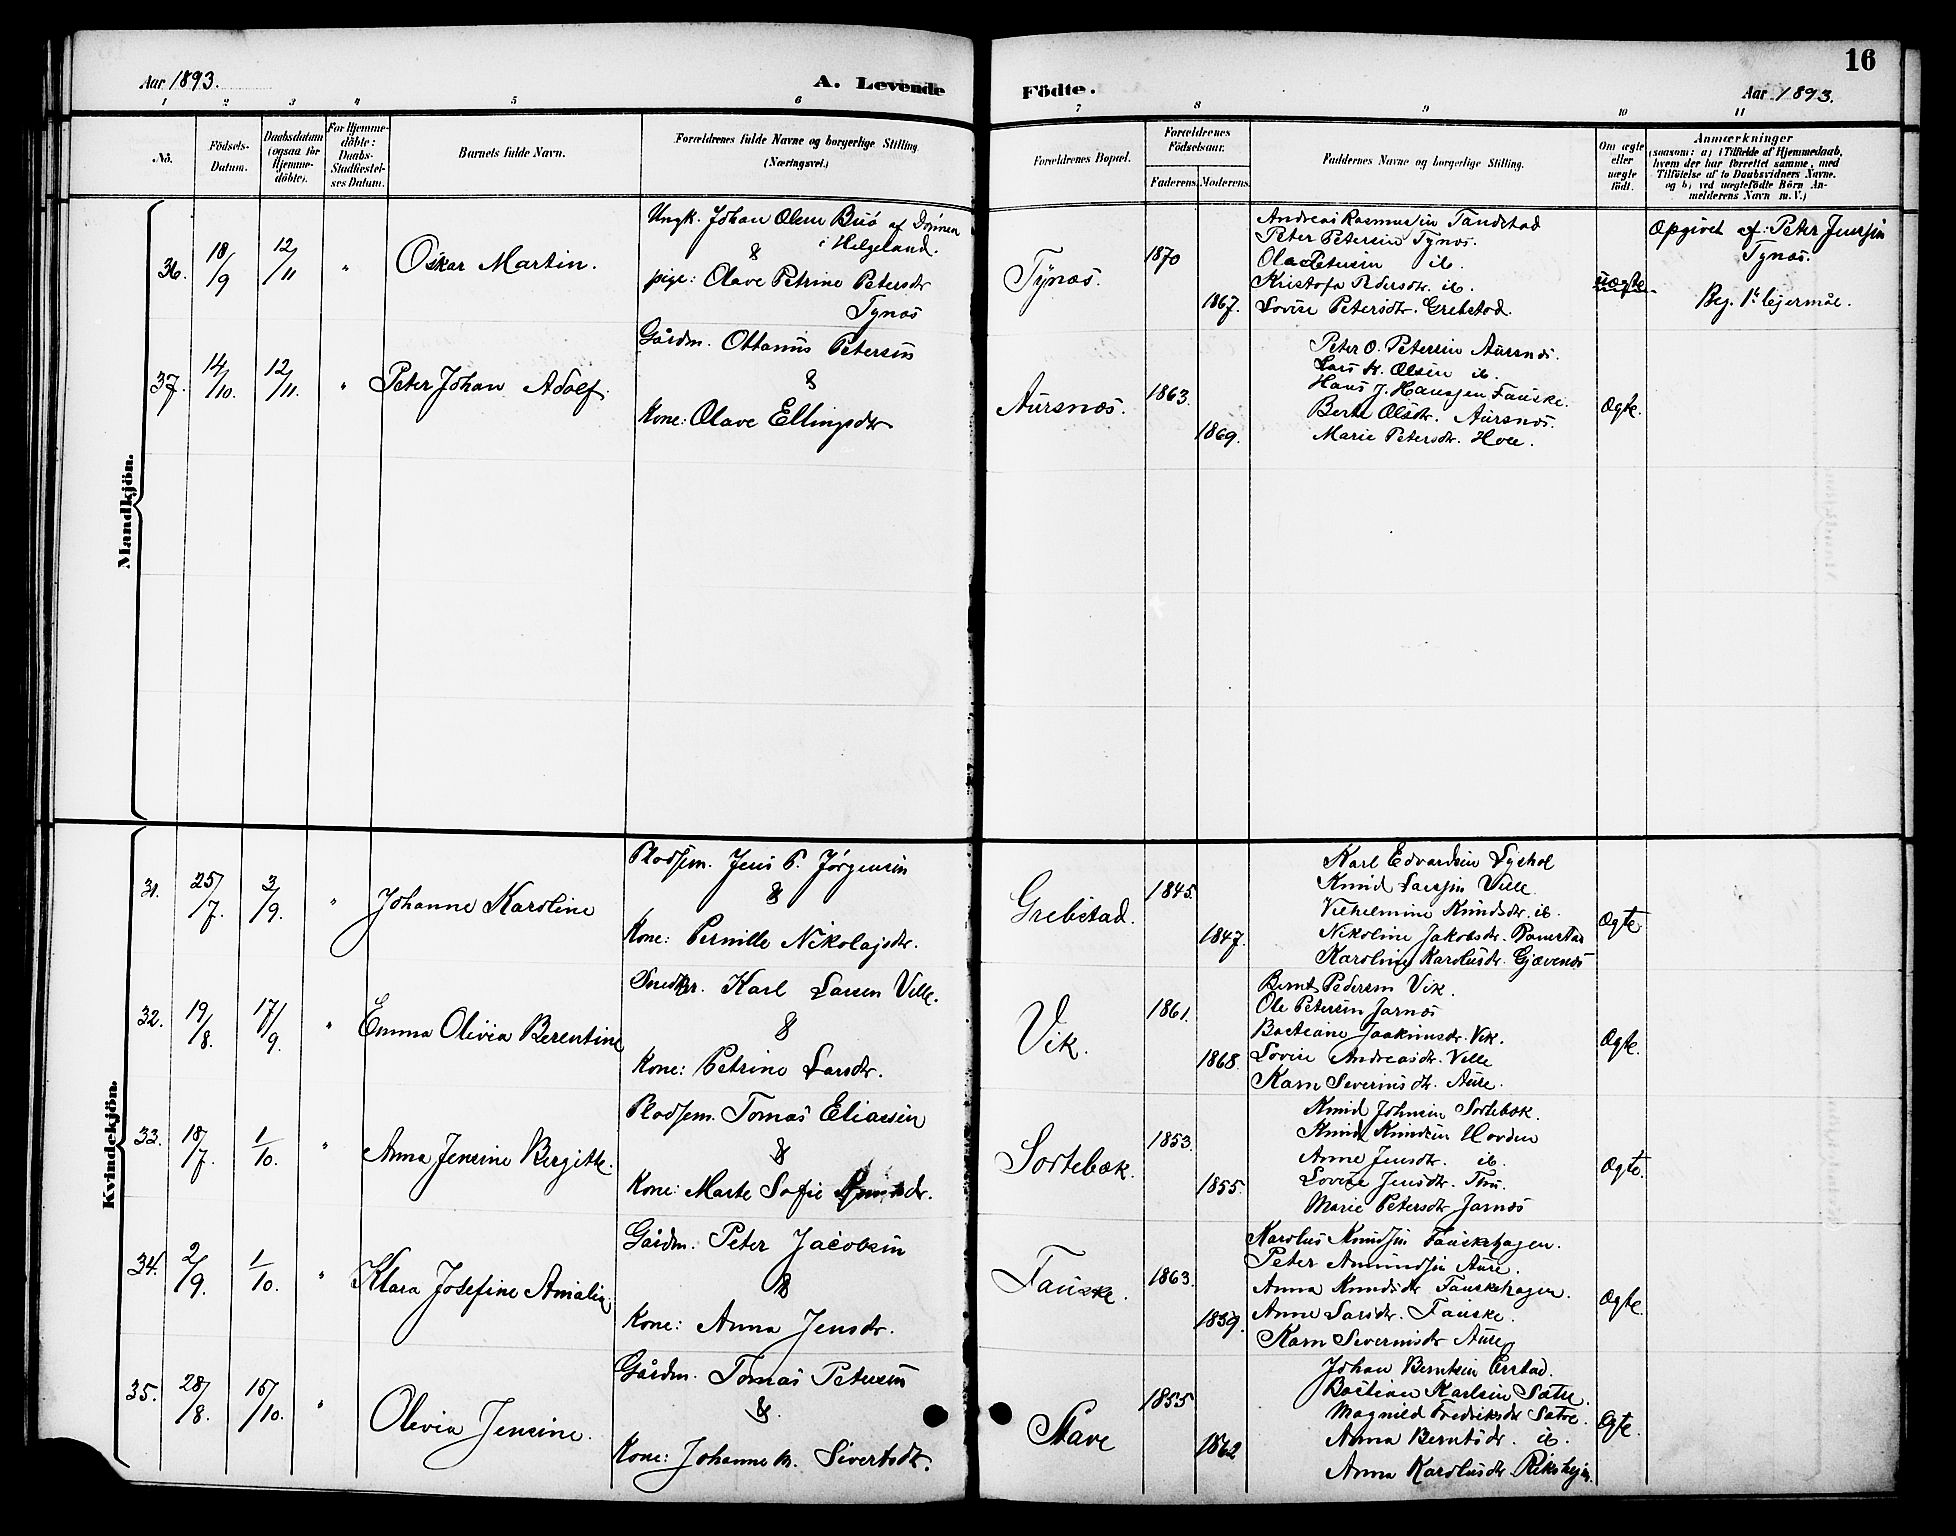 Aar 1893.
A. Levende
Födte.
Aar 1893.
16
1 2 3 4 5 6 7 8 9 10 11
No.
Födsels-
Datum.
Daabsdatum
(ogsaa for
Hjemme-
döbte).
For Hjemme-
döbte:
Daabs-
Stadfæstel-
ses Datum.
Barnets fulde Navn.
Forældrenes fulde Navne og borgerlige Stilling
(Næringsvei.)
Forældrenes Bopæl.
Forældrenes
Födselsaar.
Faderens.
Moderens.
Faddernes Navne og borgerlige Stilling.
Om ægte
eller
uægte
födt.
Anmærkninger
(saasom: a) i Tilfælde af Hjemmedaab,
hvem der har forrettet samme, med
Tilföielse af to Daabsvidners Navne.
og b) ved uægtefödte Börn An-
melderens Navn m. V.)
Mandkjön.
36.
18/9
12/11
"
Oskar Martin.
Ungk. Johan Olsen Buö af Dönnen
i Helgeland.
&
pige: Olave Petrine Petersdr
Tynæs
Tynæs.
1870
1867.
Andreas Rasmussen Tandstad
Peter Petersen Tynæs.
Ola Petersen ib.
Kristofa Pedersdr. ib.
Lovise Petersdr. Grebstad.
uægte
Opgivet af: Peter Jenssen
Tynæs.
Beg. 1ste lejermål.
37.
14/10.
12/11.
"
Peter Johan Adolf.
Gårdm. Ottanius Petersen
&
Kone: Olave Ellingsdr.
Aursnæs.
1863.
1869.
Peter O. Petersen Aursnæs.
Lars K. Olsen ib.
Hans J. Hanssen Fauske.
Berte Olsdr. Aursnæs.
Marie Petersdr. Hole.
Ægte.
Kvindekjön.
31.
25/7.
3/9.
"
Johanne Karoline
Pladsem. Jens P. Jørgensen
&
Kone: Pernille Nikolajsdr.
Grebstad.
1845.
1847.
Karl Edvardsen Lyshol
Knud Larssen Velle.
Vilhelmine Knudsdr. ib.
Nikoline Jakobsdr. Ramstad
Karoline Karolusdr. Gjævenæs
Ægte
32.
19/8.
17/9.
"
Emma Olivia Berentine
Snedker. Karl Larsen Velle.
&
Kone: Petrine Larsdr.
Vik.
1861.
1868.
Bernt Pedersen Vik.
Ole Petersen Jarnæs
Bastiane Joakimsdr. Vik.
Lovise Andreasdr. Velle
Karn Severinsdr. Aure.
Ægte.
33.
18/7.
1/10.
"
Anna Jensine Bergitte.
Pladsem. Tomas Eliassen
&
Kone: Marte Sofie
Sortebæk.
1853.
1855.
Knud Johnsen Sortebæk.
Knud Knudsen Hovden
Anne Jensdr. ib.
Lovise Jensdr.
Marie Petersdr Jarnæs
Ægte.
34.
2/9.
1/10.
"
Klara Josefine Amalia.
Gårdm. Peter Jacobsen
&
Kone: Anna Jensdr.
Fauske.
1863.
1859.
Karolus Knudsen Fauskehagen.
Peter Amundsen Aure.
Anna Knudsdr Fauskehagen.
Anne Larsdr. Fauske.
Karn Severinsdr Aure
Ægte.
35.
28/8.
15/10.
"
Olivia Jensine.
Gårdm. Tomas Petersen
&
Kone: Johanne M. Sivertsdr.
Stave
1855
1862
Johan Berntsen Erstad.
Bastian Karlsen Sætre.
Magnild Fredriksdr Sætre.
Anna Berntsdr. ib.
Anna Karolusdr Rikshejm.
Ægte.